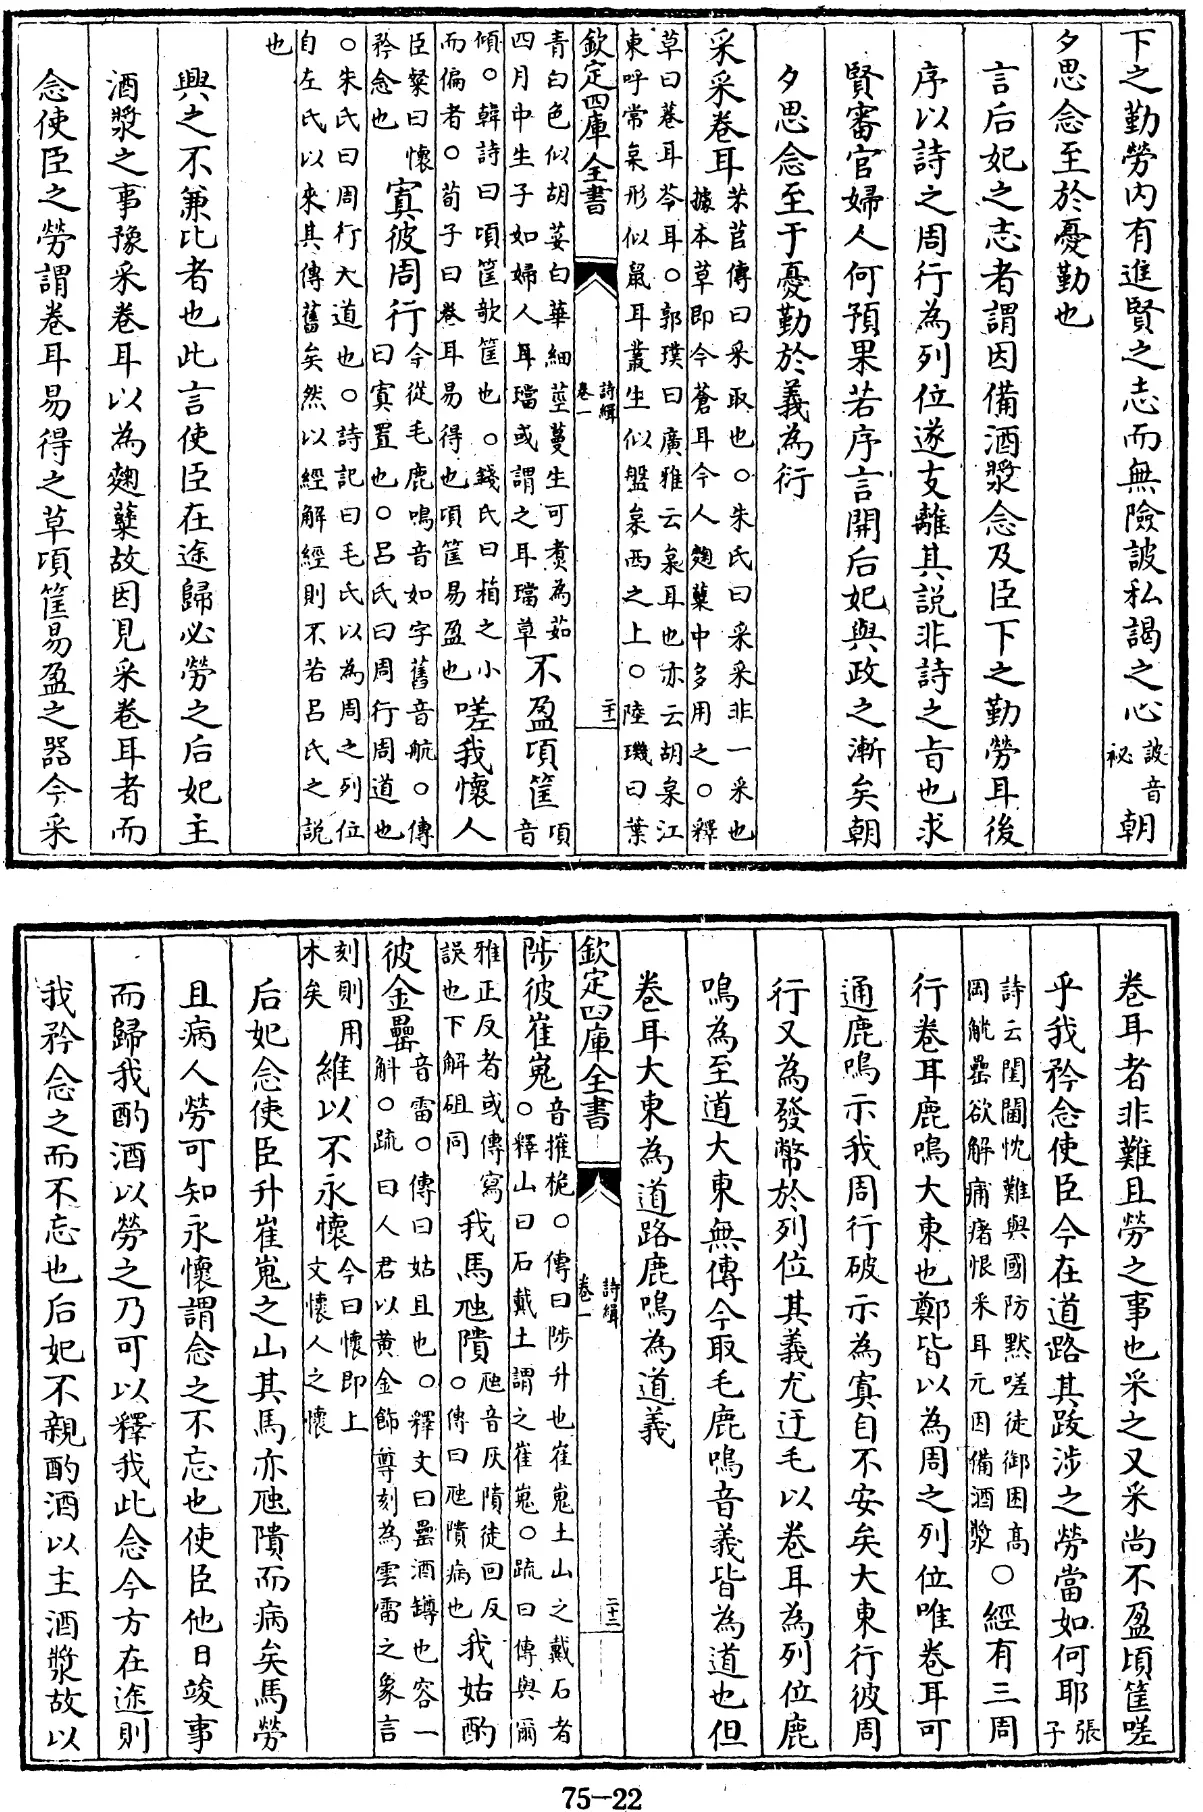 下之勤勞內有進賢之志而無險詖私謁之心詖音祕朝
夕思念至於憂勤也
言后妃之志者謂因備酒漿念及臣下之勤勞耳後
序以詩之周行為列位遂支離其説非詩之旨也求
賢審官婦人何預果若序言開后妃與政之漸矣朝
夕思念至于憂勤於義為衍
采采卷耳芣苢傳曰采取也○朱氏曰采采非一采也
據本草即今蒼耳今人麴糵中多用之○釋
草曰菤耳苓耳○郭璞曰廣雅云枲耳也亦云胡枲江
東呼常枲形似鼠耳叢生似盤
欽定四庫全書
詩緝
卷一
二十二
枲西之上○陸璣曰葉
青白色似胡荽白華細莖蔓生可煮為茹
四月中生子如婦人耳璫或謂之耳璫草
不盈頃筐頃音
傾○韓詩曰頃筐欹筐也○錢氏曰箱之小
而偏者○荀子曰卷耳易得也頃筐易盈也
嗟我懷人
臣粲曰懷
矜念也
寘彼周行今從毛鹿鳴音如字舊音航○傳
曰寘置也○呂氏曰周行周道也
○朱氏曰周行大道也○詩記曰毛氏以為周之列位
自左氏以來其傳舊矣然以經解經則不若呂氏之説
也
興之不兼比者也此言使臣在途歸必勞之后妃主
酒漿之事豫采卷耳以為麴糵故因見采卷耳者而
念使臣之勞謂卷耳易得之草頃筐易盈之器今采
卷耳者非難且勞之事也采之又采尚不盈頃筐嗟
乎我矜念使臣今在道路其跋涉之勞當如何耶張子
詩云閨閫忱難與國防黙嗟徒御困高
岡觥罍欲解痡瘏恨采耳元因備酒漿
○經有三周
行卷耳鹿鳴大東也鄭皆以為周之列位唯卷耳可
通鹿鳴示我周行破示為寘自不安矣大東行彼周
行又為發幣於列位其義尤迂毛以卷耳為列位鹿
鳴為至道大東無傳今取毛鹿鳴音義皆為道也但
卷耳大東為道路鹿鳴為道義
欽定四庫全書
詩緝
卷一
二十二
陟彼崔嵬音摧桅○傳曰陟升也崔嵬土山之戴石者
○釋山曰石戴土謂之崔嵬○疏曰傳與爾
雅正反者或傳寫
誤也下解砠同
我馬虺隤虺音灰隤徒回反
○傳曰虺隤病也
我姑酌
彼金罍音雷○傳曰姑且也○釋文曰罍酒罇也容一
斛○疏曰人君以黄金飾尊刻為雲雷之象言
刻則用
木矣
維以不永懷今曰懷即上
文懷人之懷
后妃念使臣升崔嵬之山其馬亦虺隤而病矣馬勞
且病人勞可知永懷謂念之不忘也使臣他日竣事
而歸我酌酒以勞之乃可以釋我此念今方在途則
我矜念之而不忘也后妃不親酌酒以主酒漿故以
75-22